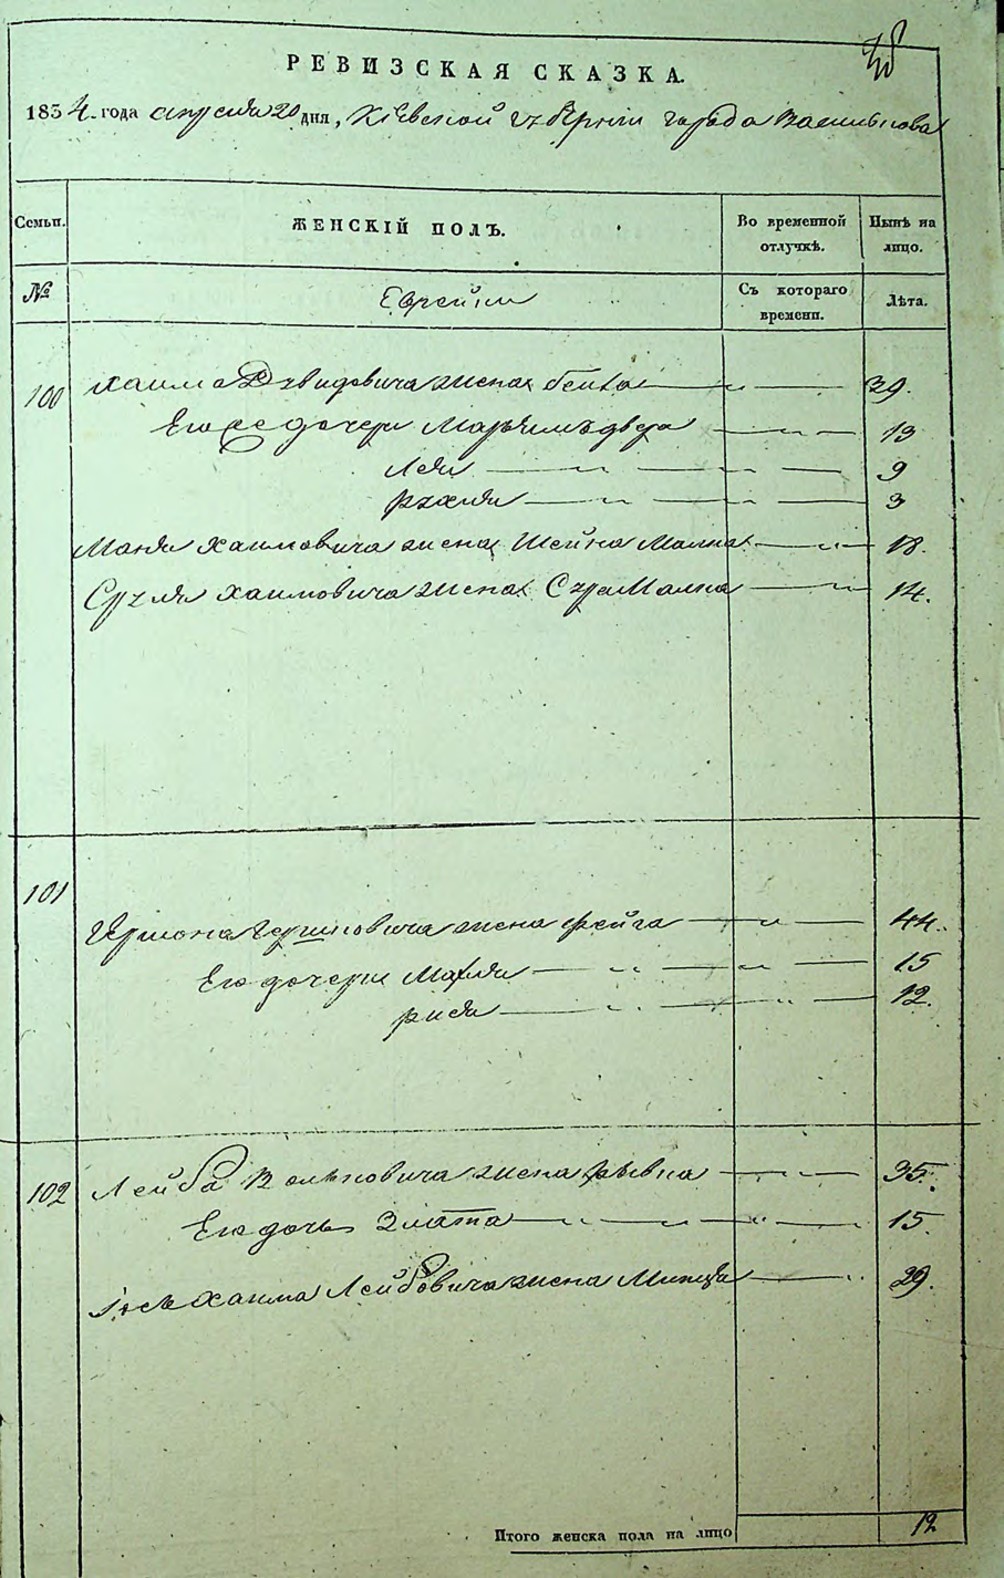 РЕВИЗСКАЯ СКАЗКА.
1834 года апреля 20 дня, Кіевской губерніи города Василькова
Семьи. ЖЕНСКІЙ ПОЛЪ. Во временной отлучкѣ. Нынѣ на лицо.
№ Еврейки Съ котораго времени. Лѣта.
100 Хаима Давидовича жена Бейла 39.
Его дочери Марьямъ двера 13
Лея 9
Рухля 3
Хаимовича жена Шейна Малка 18.
Сруля Хаимовича жена Сура Малка 14.
101
Гершона Гершковича жена Фейга 44.
Его дочери 15
Рися 12.
102 Лейба Волковича жена Ривка 35.
Его дочь Злата 15.
Хаима Лейбовича жена 29.
Итого женска пола на лицо 12